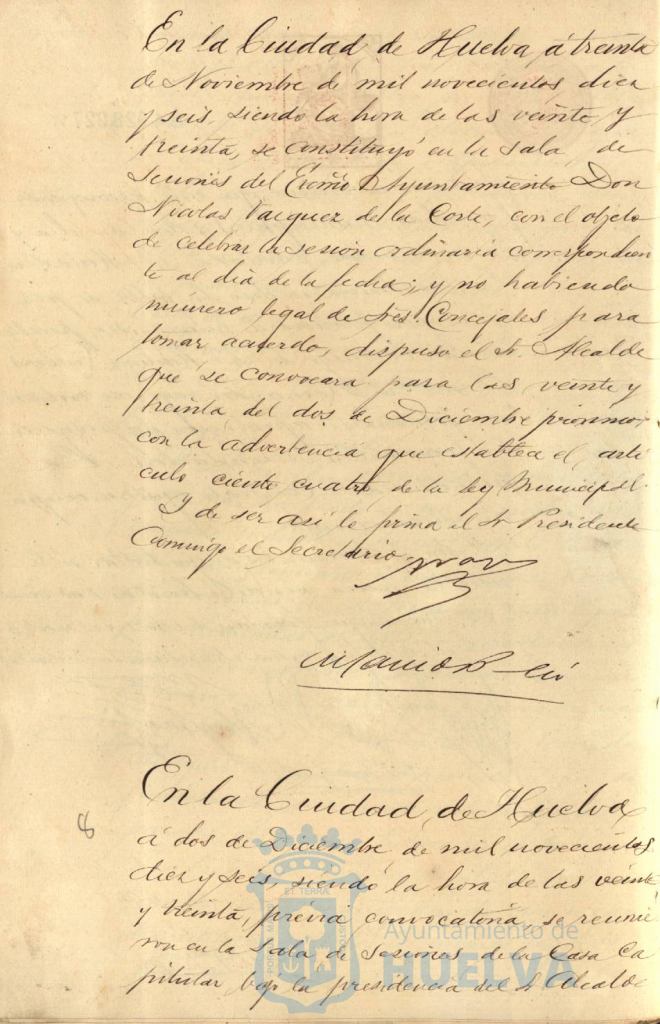 En la Ciudad de Huelva, á treinta
de Noviembre de mil novecientos diez
y seis, siendo la hora de las veinte y
treinta, se constituyó en la Sala de
Sesiones del Excmo Ayuntamiento Don
Nicolas Vazquez de la Corte, con el objeto
de celebrar la sesión ordinaria correspondien
te al dia de la fecha; y no habiendo
numero legal de Sres. Concejales para
tomar acuerdo, dispuso el Sr. Alcalde
que se convocara para las veinte y
treinta del dos de Diciembre proximo,
con la advertencia que establece el arti
culo ciento cuatro de la ley Municipal.
Y de ser asi lo firma el Sr. Presidente
Conmigo el Secretario.
8
En la Ciudad de Huelva,
á dos de Diciembre de mil novecientos
diez y seis, siendo la hora de las veinte
y treinta, prévia convocatoria, se reunie
ron en la Sala de Sesiones de la Casa Ca
pitular bajo la presidencia del Sr Alcalde
Ayuntamiento de
HUELVA